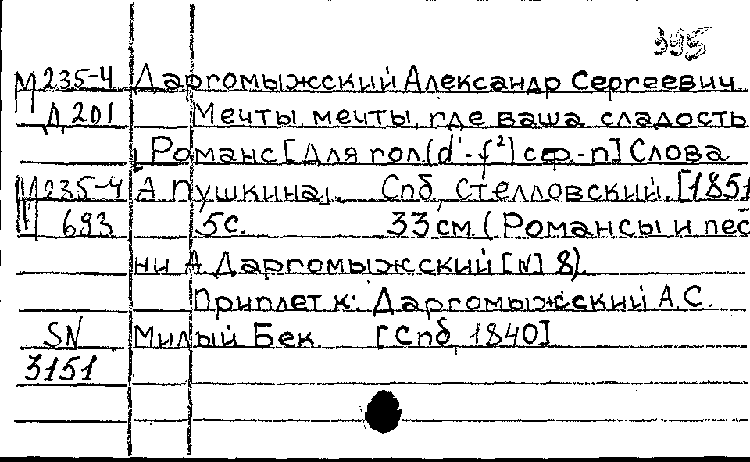 395
М235-4 Даргомыжский Александр Сергеевич
Д 201 Мечты мечты, где ваша сладость
Романс [Для гол(d'-f²) с ф-п] Слова
М235-4 А Пушкина,. Спб, Стелловский, [1851
693 5с. 33 см (Романсы и пес
ни А Даргомыжский [N] 8).
Приплет к: Даргомыжский А.С.
SN Милый Бек [Спб, 1840]
3151